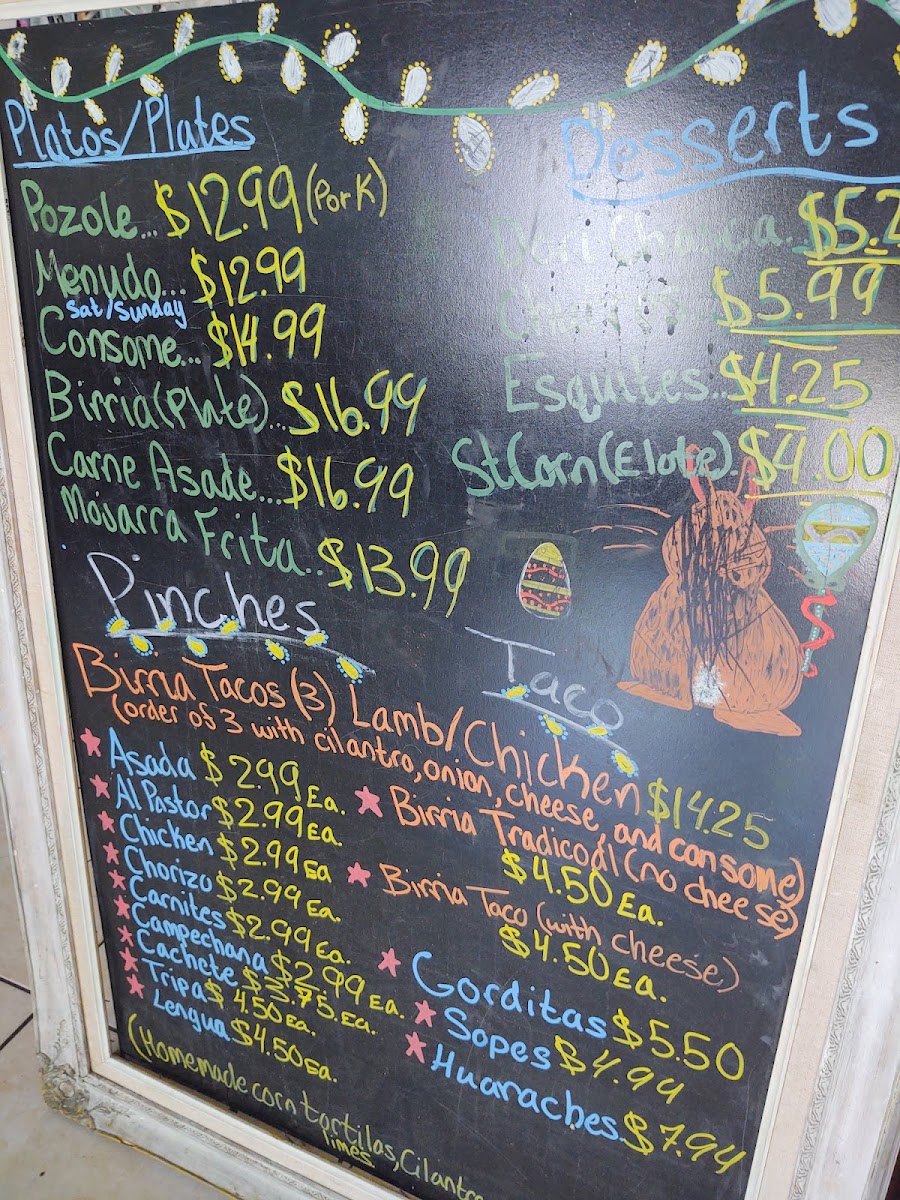 Platos/Plates
Pozole... $12.99 (Pork)
Menudo... $12.99
Sat/Sunday
Consome... $14.99
Birria (Plate)... $16.99
Carne Asade... $16.99
Mojarra Frita... $13.99
Desserts
$5.2
$5.99
Esquites... $4.25
St Corn (Elote). $4.00
Pinches
Taco
Birria Tacos (3) Lamb/Chicken $14.25
(order of 3 with cilantro, onion, cheese, and consome)
Asada $2.99 Ea.
Al Pastor $2.99 Ea.
Chicken $2.99 Ea
Chorizo $2.99 Ea.
Carnites $2.99 Ea.
Campechana $2.99 Ea.
Cachete $3.75 Ea.
Tripa $4.50 Ea.
Lengua $4.50 Ea.
Birria Tradicoal (no cheese)
$4.50 Ea.
Birria Taco (with cheese)
$4.50 Ea.
Gorditas $5.50
Sopes $4.94
Huaraches $7.94
(Homemade corn tortilas, Cilantro
limes